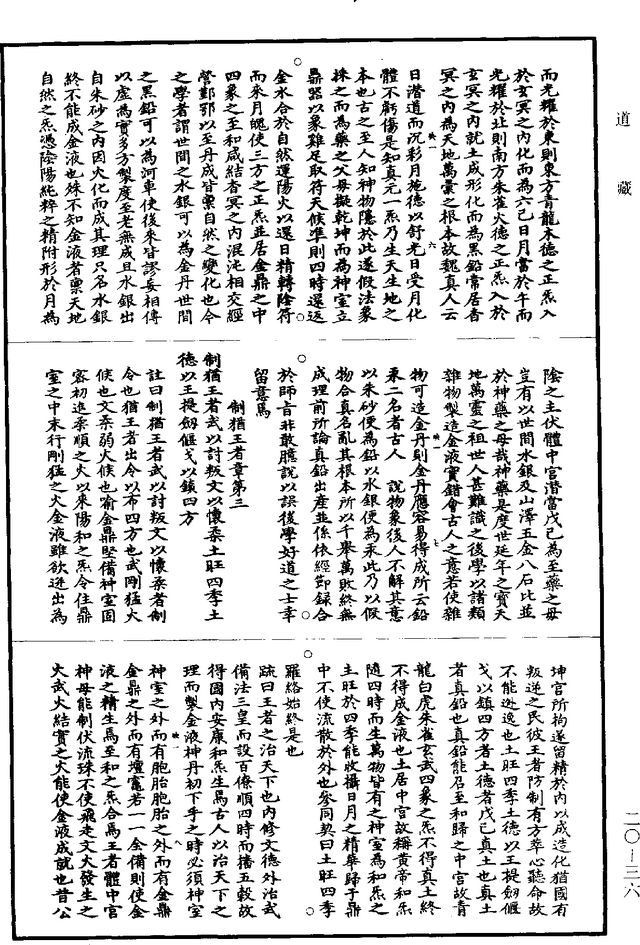 道藏
而光耀於東則東方青龍木德之正炁入
於玄冥之內化而為六己日月當於午而
光耀於北則南方朱雀火德之正炁入於
玄冥之內就土成形化而為黑鉛常居杳
冥之內為天地萬彙之根本故魏真人云
日潛道而沉彩月施德以舒光日受月化
體不虧傷是知真元一炁乃生天生地之
本也古之至人知神物隱於此遂假法象
採之而為藥之父母擬乾坤而為神室立
鼎器以象難足取符天候準則四時還返
金水合於自然運陽火以還日精轉陰符
而來月魄使三方之正炁並居金鼎之中
四象之至和咸結杳冥之內混沌相交經
營鄞鄂以至丹成皆禀自然之變化也今
之學者謂世間之水銀可以為金丹世間
之黑鉛可以為河車使後來皆謬妄相傳
以虛為實多方製度至老無成且水銀出
自朱砂之內因火化而成其理只名水銀
終不能成金液也殊不知金液者禀天地
自然之炁憑陰陽純粹之精附形於月為
陰之主伏體中宮潛當戊己為至藥之母
豈有以世間水銀及山澤五金八石比並
於神藥之母哉神藥是度世延年之寶天
地萬靈之祖世人甚難識之後學以諸類
雜物製造金液實錯會古人之意若使雜
物可造金丹則金丹應容易得成所云鉛
汞二名者古人說物象後人不解其意
以朱砂便為鉛以水銀便為汞此乃以假
物合真名亂其根本所以千舉萬敗終無
成理前所論真鉛出產並係依經節錄合
於師旨非敢臆說以誤後學好道之士幸
留意焉
制猶王者章第三
制猶王者武以討叛文以懷柔土旺四季土
德以王提劍偃戈以鎮四方
註曰制猶王者武以討叛文以懷柔者制
令也猶王者出令以布四方也武剛猛火
候也文柔弱火候也喻金鼎堅備神室固
密初進柔順之火以來陽和之炁令住鼎
室之中末行剛猛之火金液雖欲逃出為
坤宮所拘遂留精於內以成造化猶國有
叛逆之民彼王者防制有方萃心聽命故
不能逃逸也土旺四季土德以王提劍偃
戈以鎮四方者土德者戊己真土也真土
者真鉛也真鉛能召至和歸之中宮故青
龍白虎朱雀玄武四象之炁不得真土終
不得成金液也土居中宮故稱黃帝和炁
隨四時而生萬物皆有之神室為和炁之
土旺於四季能收攝日月之精華歸于鼎
中不使流散於外也參同契曰土旺四季
羅絡始終是也
疏曰王者之治天下也內修文德外治武
備法三皇而設百僚順四時而播五穀故
得國內安康和炁生焉古人以治天下之
理而製金液神丹初下手之時必須神室
神室之外而有胞胎胞胎之外而有金鼎
金鼎之外而有壇竈若一一全備則使金
液之精生焉至和之炁合焉王者體中宮
神母能制伏流珠不使飛走文火發生之
火武火結實之火能使金液成就也昔公
二〇—三六